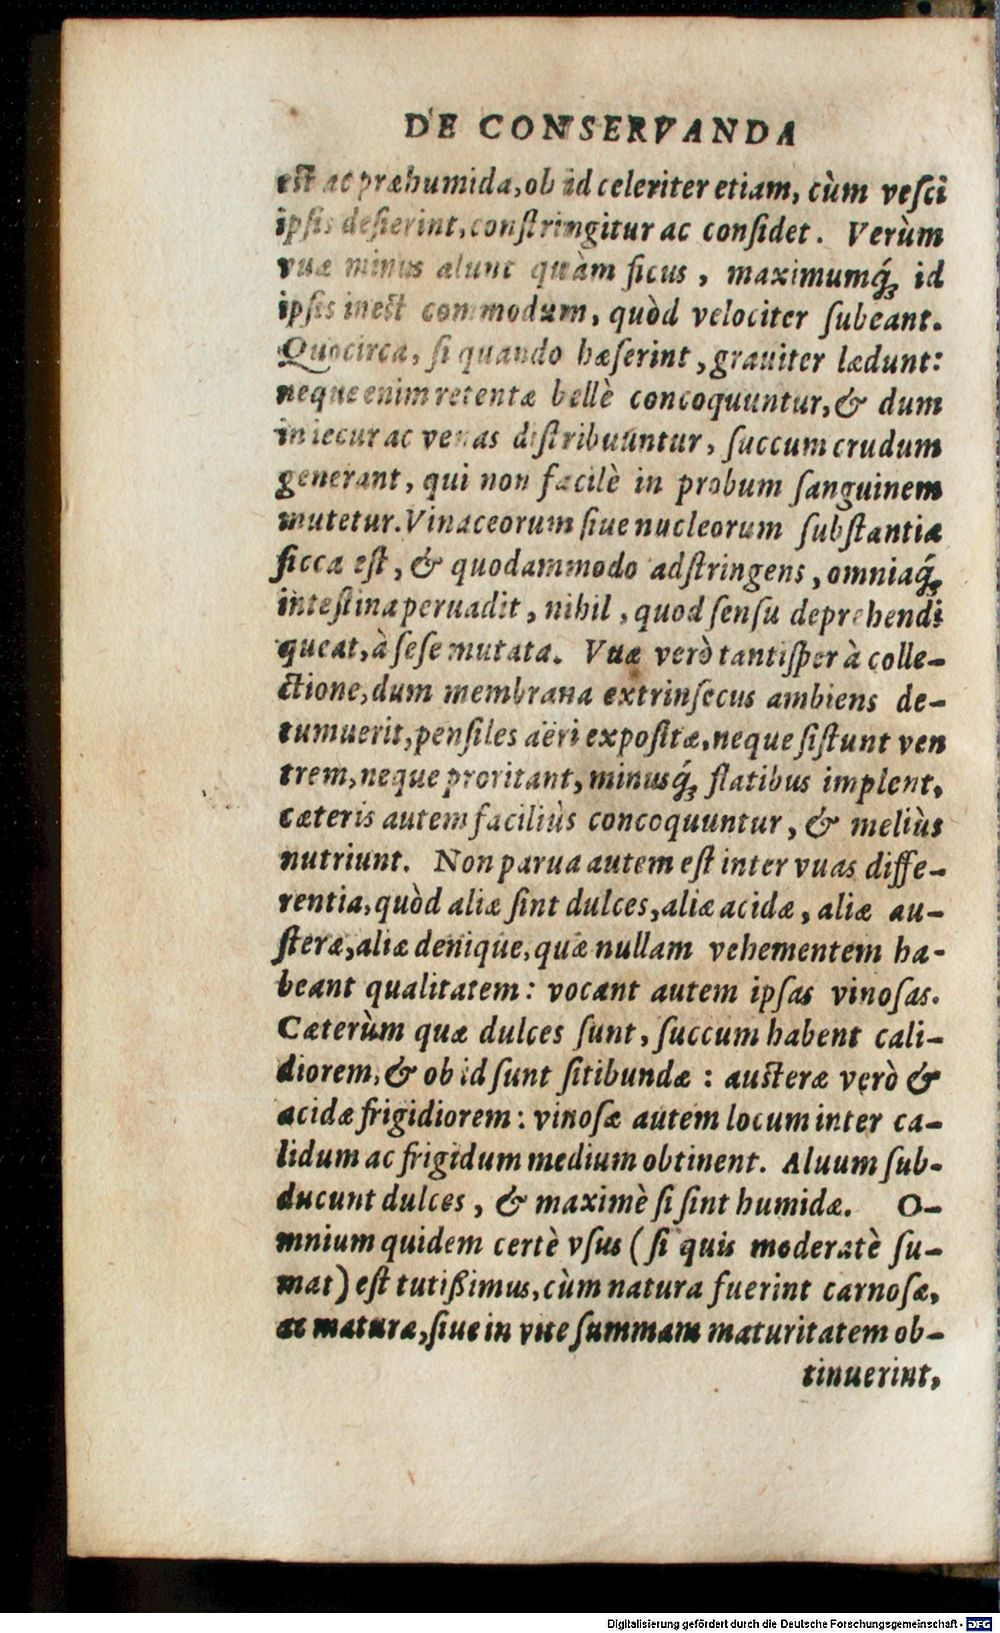 DE CONSERVANDA
est ac præhumida, ob id celeriter etiam, cùm vesci
ipsis desierint, constringitur ac considet. Verùm
vuæ minus alunt quàm ficus, maximumq́; id
ipsis inest commodum, quòd velociter subeant.
Quocirca, si quando hæserint, grauiter lædunt:
neque enim retentæ bellè concoquuntur, & dum
in iecur ac venas distribuuntur, succum crudum
generant, qui non facilè in probum sanguinem
mutetur. Vinaceorum siue nucleorum substantia
sicca est, & quodammodo adstringens, omniaq́;
intestina peruadit, nihil, quod sensu deprehendi
queat, à sese mutata. Vuæ verò tantisper à colle-
ctione, dum membrana extrinsecus ambiens de-
tumuerit, pensiles aëri expositæ, neque sistunt ven
trem, neque proritant, minusq́; flatibus implent,
cæteris autem faciliùs concoquuntur, & meliùs
nutriunt. Non parua autem est inter vuas diffe-
rentia, quòd aliæ sint dulces, aliæ acidæ, aliæ au-
steræ, aliæ denique, quæ nullam vehementem ha-
beant qualitatem: vocant autem ipsas vinosas.
Cæterùm quæ dulces sunt, succum habent cali-
diorem, & ob id sunt sitibundæ: austeræ verò &
acidæ frigidiorem: vinosæ autem locum inter ca-
lidum ac frigidum medium obtinent. Aluum sub-
ducunt dulces, & maximè si sint humidæ. O-
mnium quidem certè vsus (si quis moderatè su-
mat) est tutißimus, cùm natura fuerint carnosæ,
ac maturæ, siue in vite summam maturitatem ob-
tinuerint,
Digitalisierung gefördert durch die Deutsche Forschungsgemeinschaft - DFG